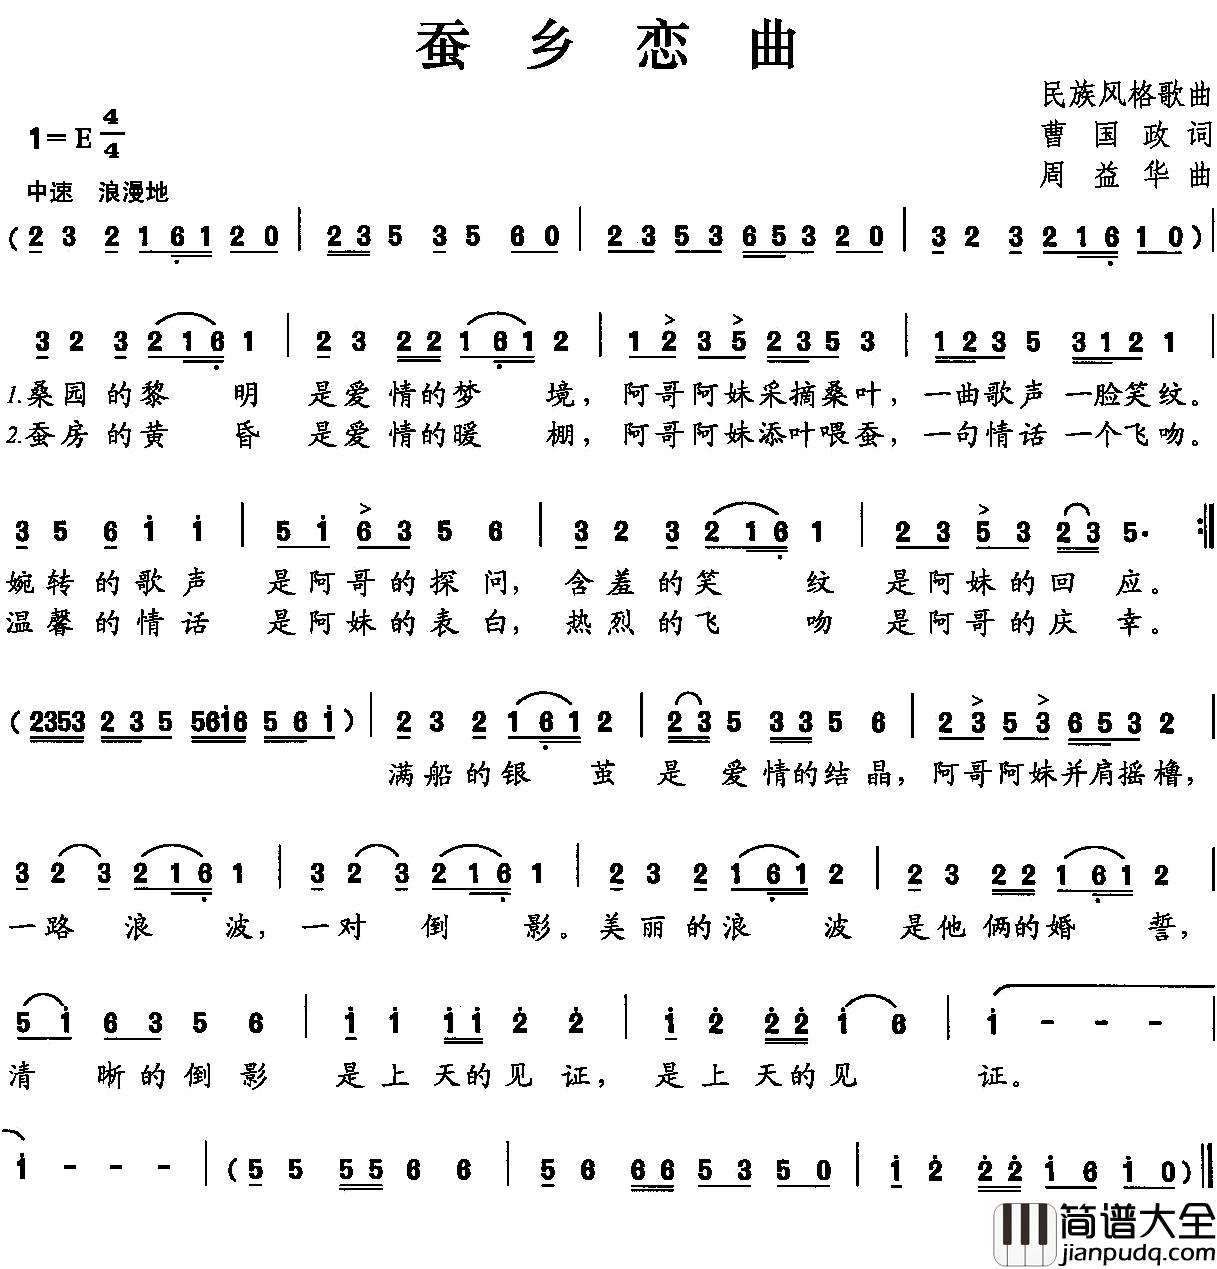 蚕乡恋曲
民族风格歌曲
1=E 4/4
曹国政词
周益华曲
中速 浪漫地
(2 3 2 1 6 1 2 0 | 2 3 5 3 5 6 0 | 2 3 5 3 6 5 3 2 0 | 3 2 3 2 1 6 1 0)|
3 2 3 2 1 6 1 | 2 3 2 2 1 6 1 2 | 1 2 3 5 2 3 5 3 | 1 2 3 5 3 1 2 1 |
1.桑园的黎明 是爱情的梦境，阿哥阿妹采摘桑叶，一曲歌声一脸笑纹。
2.蚕房的黄昏 是爱情的暖棚，阿哥阿妹添叶喂蚕，一句情话一个飞吻。
3 5 6 i i | 5 i 6 3 5 6 | 3 2 3 2 1 6 1 | 2 3 5 3 2 3 5· :||
婉转的歌声 是阿哥的探问，含羞的笑纹 是阿妹的回应。
温馨的情话 是阿妹的表白，热烈的飞吻 是阿哥的庆幸。
(2353 2 3 5 56i6 5 6 i) | 2 3 2 1 6 1 2 | 2 3 5 3 3 5 6 | 2 3 5 3 6 5 3 2 |
满船的银茧 是爱情的结晶，阿哥阿妹并肩摇橹，
3 2 3 2 1 6 1 | 3 2 3 2 1 6 1 | 2 3 2 1 6 1 2 | 2 3 2 2 1 6 1 2 |
一路浪波，一对倒影。美丽的浪波 是他俩的婚誓，
5 i 6 3 5 6 | i i i i 2 2 | i 2 2 2 i 6 | i - - -
清晰的倒影 是上天的见证，是上天的见证。
i - - - | (5 5 5 5 6 6 | 5 6 6 6 5 3 5 0 | i 2 2 2 i 6 i 0)||
简谱大全
jianpudq.com